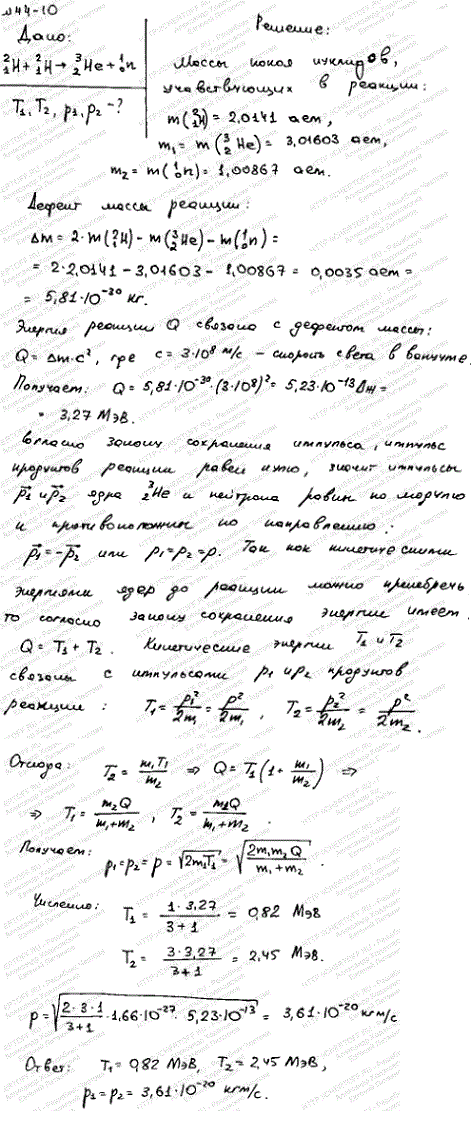 №44-10
Дано:
²₁H + ²₁H → ³₂He + ¹₀n
T₁, T₂, p₁, p₂ -?
Решение:
Массы покоя нуклидов,
участвующих в реакции:
m(²₁H) = 2,0141 аем,
m₁ = m(³₂He) = 3,01603 аем,
m₂ = m(¹₀n) = 1,00867 аем.
Дефект массы реакции:
Δm = 2·m(²₁H) - m(³₂He) - m(¹₀n) =
= 2·2,0141 - 3,01603 - 1,00867 = 0,0035 аем =
= 5,81·10⁻³⁰ кг.
Энергия реакции Q связана с дефектом массы:
Q = Δm·c², где c = 3·10⁸ м/с - скорость света в вакууме.
Получаем: Q = 5,81·10⁻³⁰·(3·10⁸)² = 5,23·10⁻¹³ Дж =
= 3,27 МэВ.
Согласно закону сохранения импульса, импульс
продуктов реакции равен нулю, значит импульсы
p⃗₁ и p⃗₂ ядра ³₂He и нейтрона равны по модулю
и противоположны по направлению:
p⃗₁ = -p⃗₂ или p₁ = p₂ = p. Так как кинетическими
энергиями ядер до реакции можно пренебречь
то согласно закону сохранения энергии имеем:
Q = T₁ + T₂. Кинетические энергии T₁ и T₂
связаны с импульсами p₁ и p₂ продуктов
реакции: T₁ = p₁²/2m₁ = p²/2m₁, T₂ = p₂²/2m₂ = p²/2m₂.
Отсюда: T₂ = m₁T₁/m₂ ⇒ Q = T₁(1 + m₁/m₂) ⇒
⇒ T₁ = m₂Q/(m₁+m₂), T₂ = m₁Q/(m₁+m₂).
Получаем: p₁ = p₂ = p = √(2m₁T₁) = √(2m₁m₂Q/(m₁+m₂)).
Численно: T₁ = 1·3,27/(3+1) = 0,82 МэВ
T₂ = 3·3,27/(3+1) = 2,45 МэВ.
p = √(2·3·1/(3+1)·1,66·10⁻²⁷·5,23·10⁻¹³) = 3,61·10⁻²⁰ кгм/с
Ответ: T₁ = 0,82 МэВ, T₂ = 2,45 МэВ,
p₁ = p₂ = 3,61·10⁻²⁰ кгм/с.